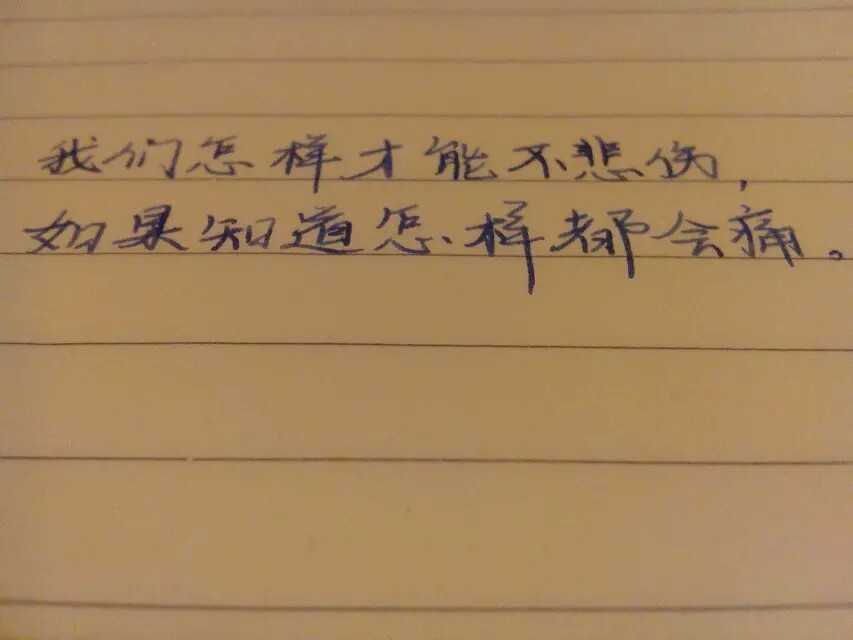 我们怎样才能不悲伤,
如果知道怎样都会痛。